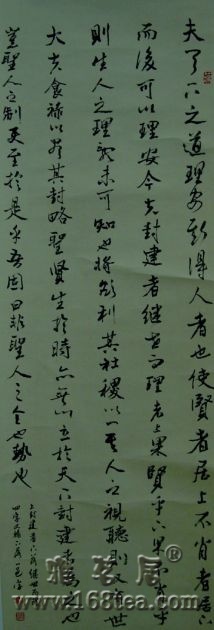 夫天下之道理安斯得人者也使賢者居上不肖者居下
而後可以理安今夫封建者继世而理者上果賢乎下果不肖乎
則生人之理亂未可知也將欲利其社稷以一其人之視聽則又有世
大夫食祿以尽其封略聖賢生於時亦無以立於天下封建者為之也
豈聖人之制使至於是乎吾固曰非聖人之意也勢也
雅茗居
www.168tea.com